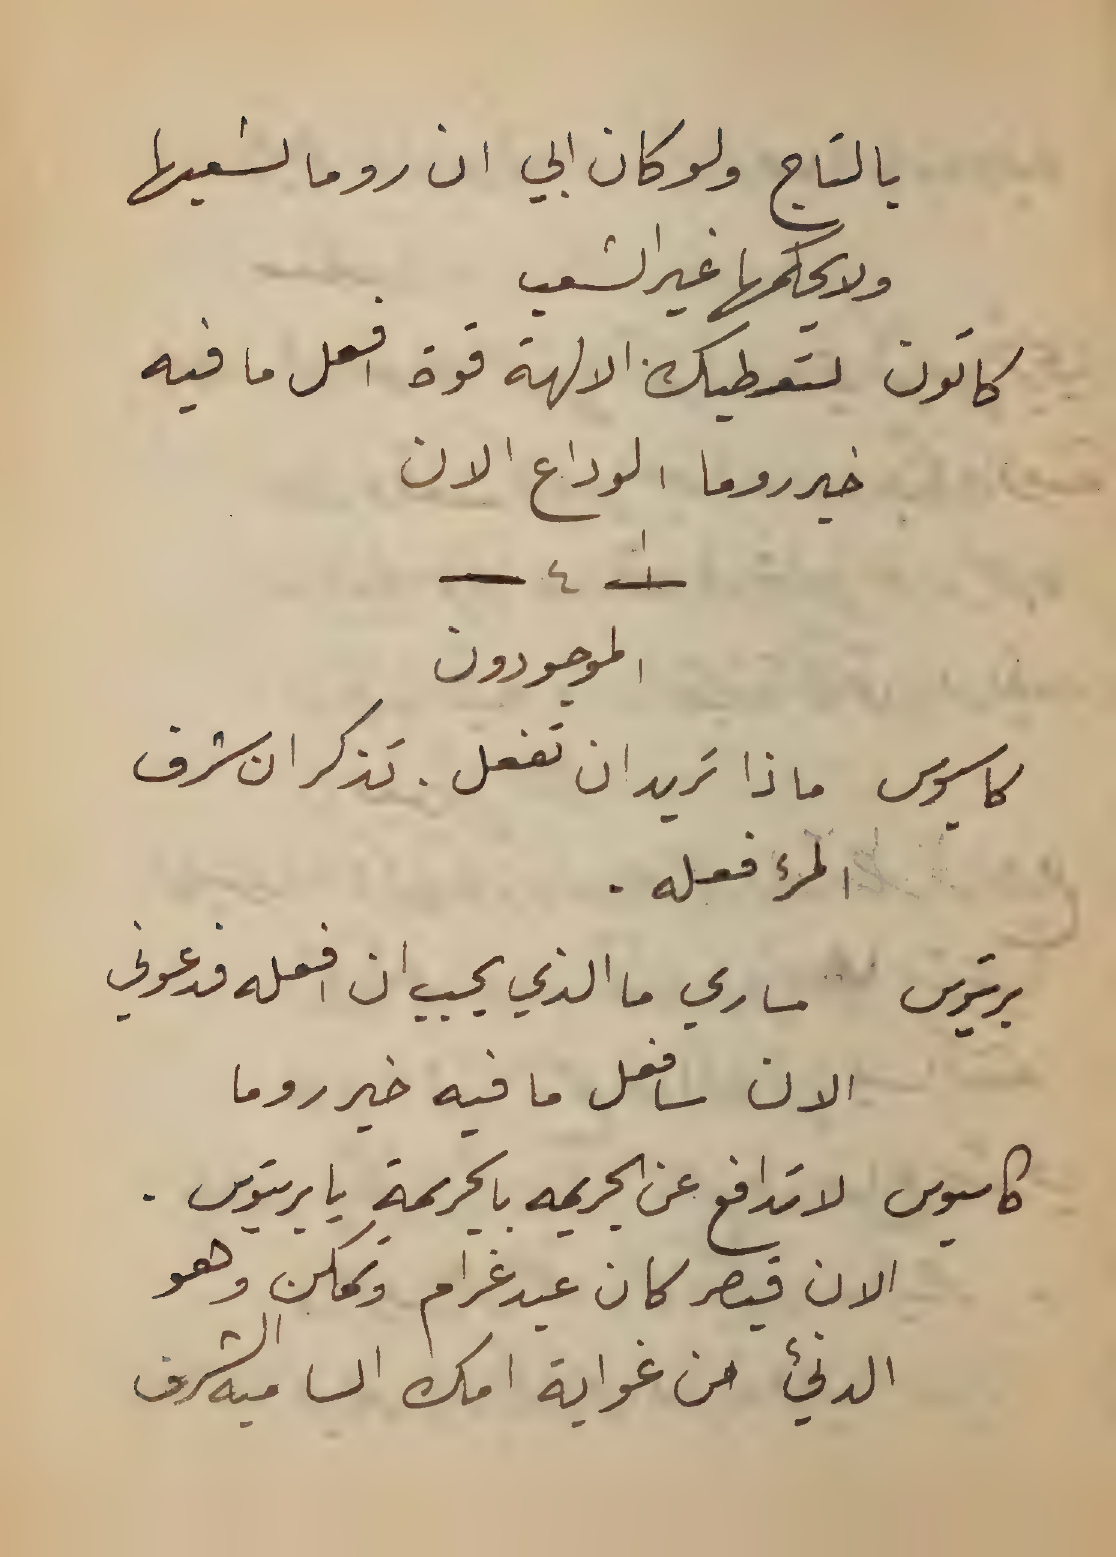 بالتاج ولو كان ابي ان روما لشعبها
ولا يحكمها غير الشعب
كاتون لتعطيك الالهة قوة افعل ما فيه
خير روما الوداع الان
— ٤ —
الموجودون
كاسيوس ماذا تريد ان تفعل . تذكر ان شرف
المرء فعله .
بريتوس سارى ما الذي يجب ان افعله فدعوني
الان سافعل ما فيه خير روما
كاسيوس لا تدافع عن الجريمه بالجريمة يا بريتوس .
الان قيصر كان عبد غرام وتمكن وهو
الدنئ من غواية امك الساميه الشرف